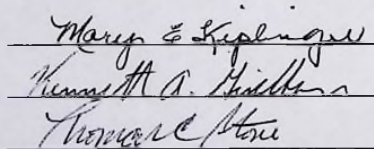 Mary E Kiplinger
Kenneth A.
Thomas C Stone